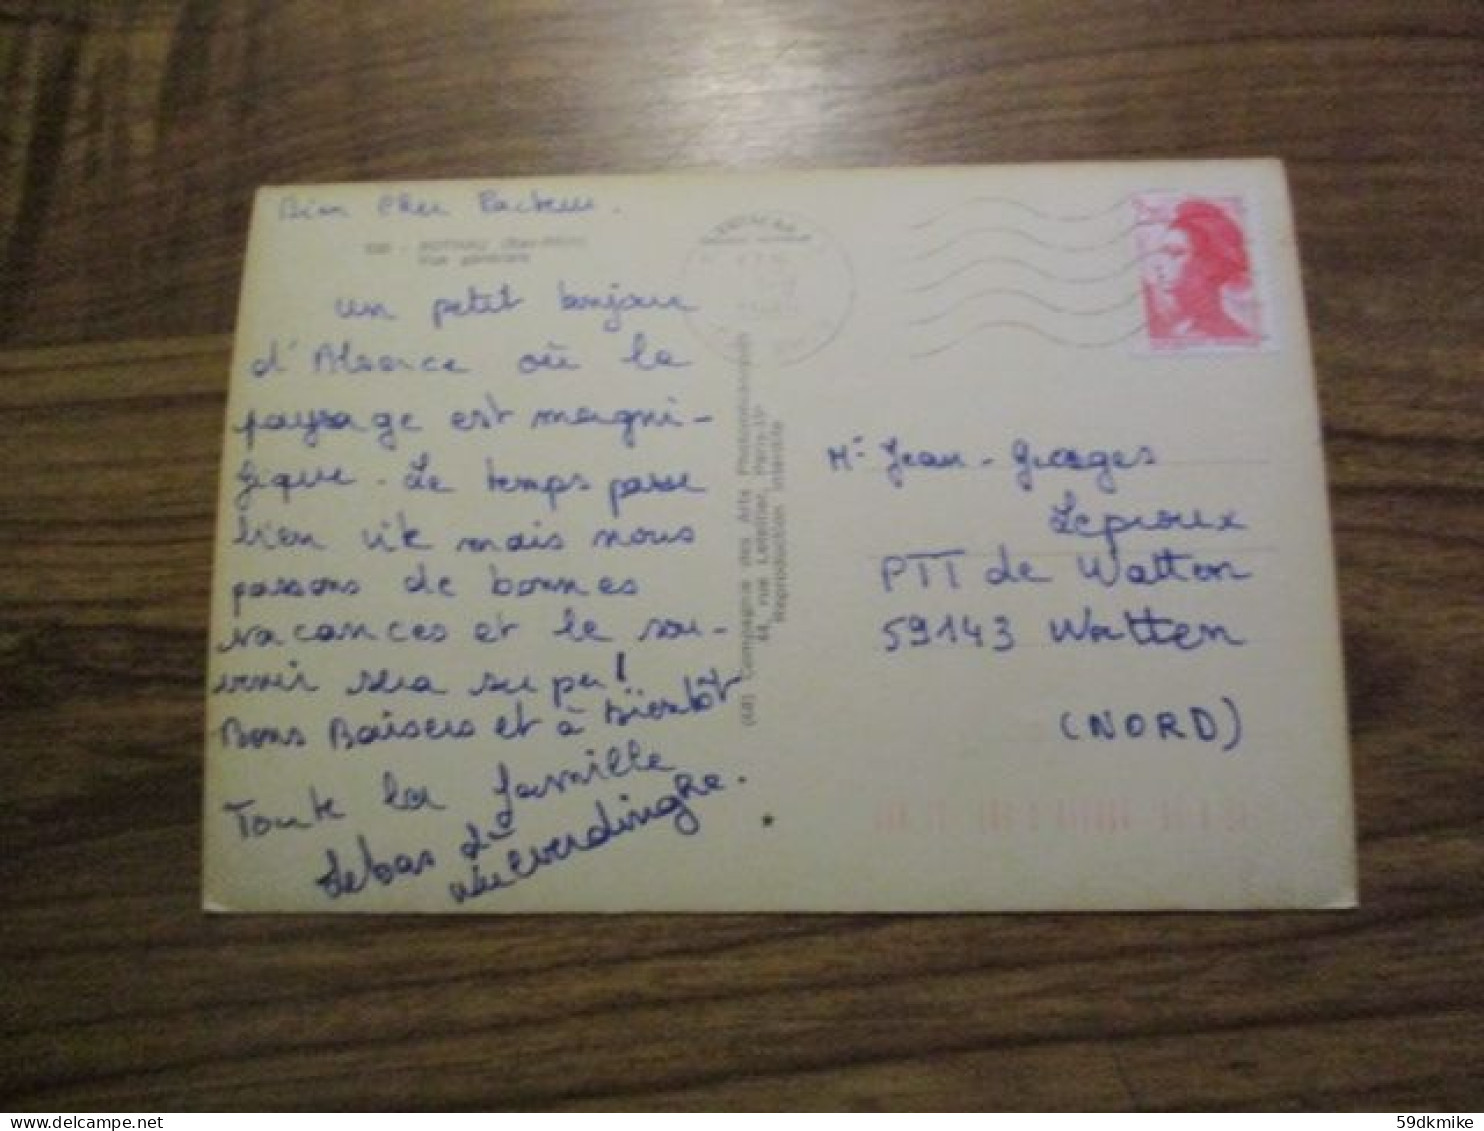 Bien Cher Facteur.
ROTHAU (Bas-Rhin)
Vue générale
un petit bonjour
d'Alsace où le
paysage est magni-
fique. Le temps passe
bien vite mais nous
passons de bonnes
vacances et le sou-
venir sera super!
Bons Baisers et à Bientôt
Toute la famille
Lebas d'
Nieverdinghe.
(68) Compagnie des Arts Photomécaniques
44, rue Letellier, Paris-15e
Reproduction interdite
Mr Jean-Georges
Leproux
PTT de Watten
59143 Watten
(NORD)
59dkmike